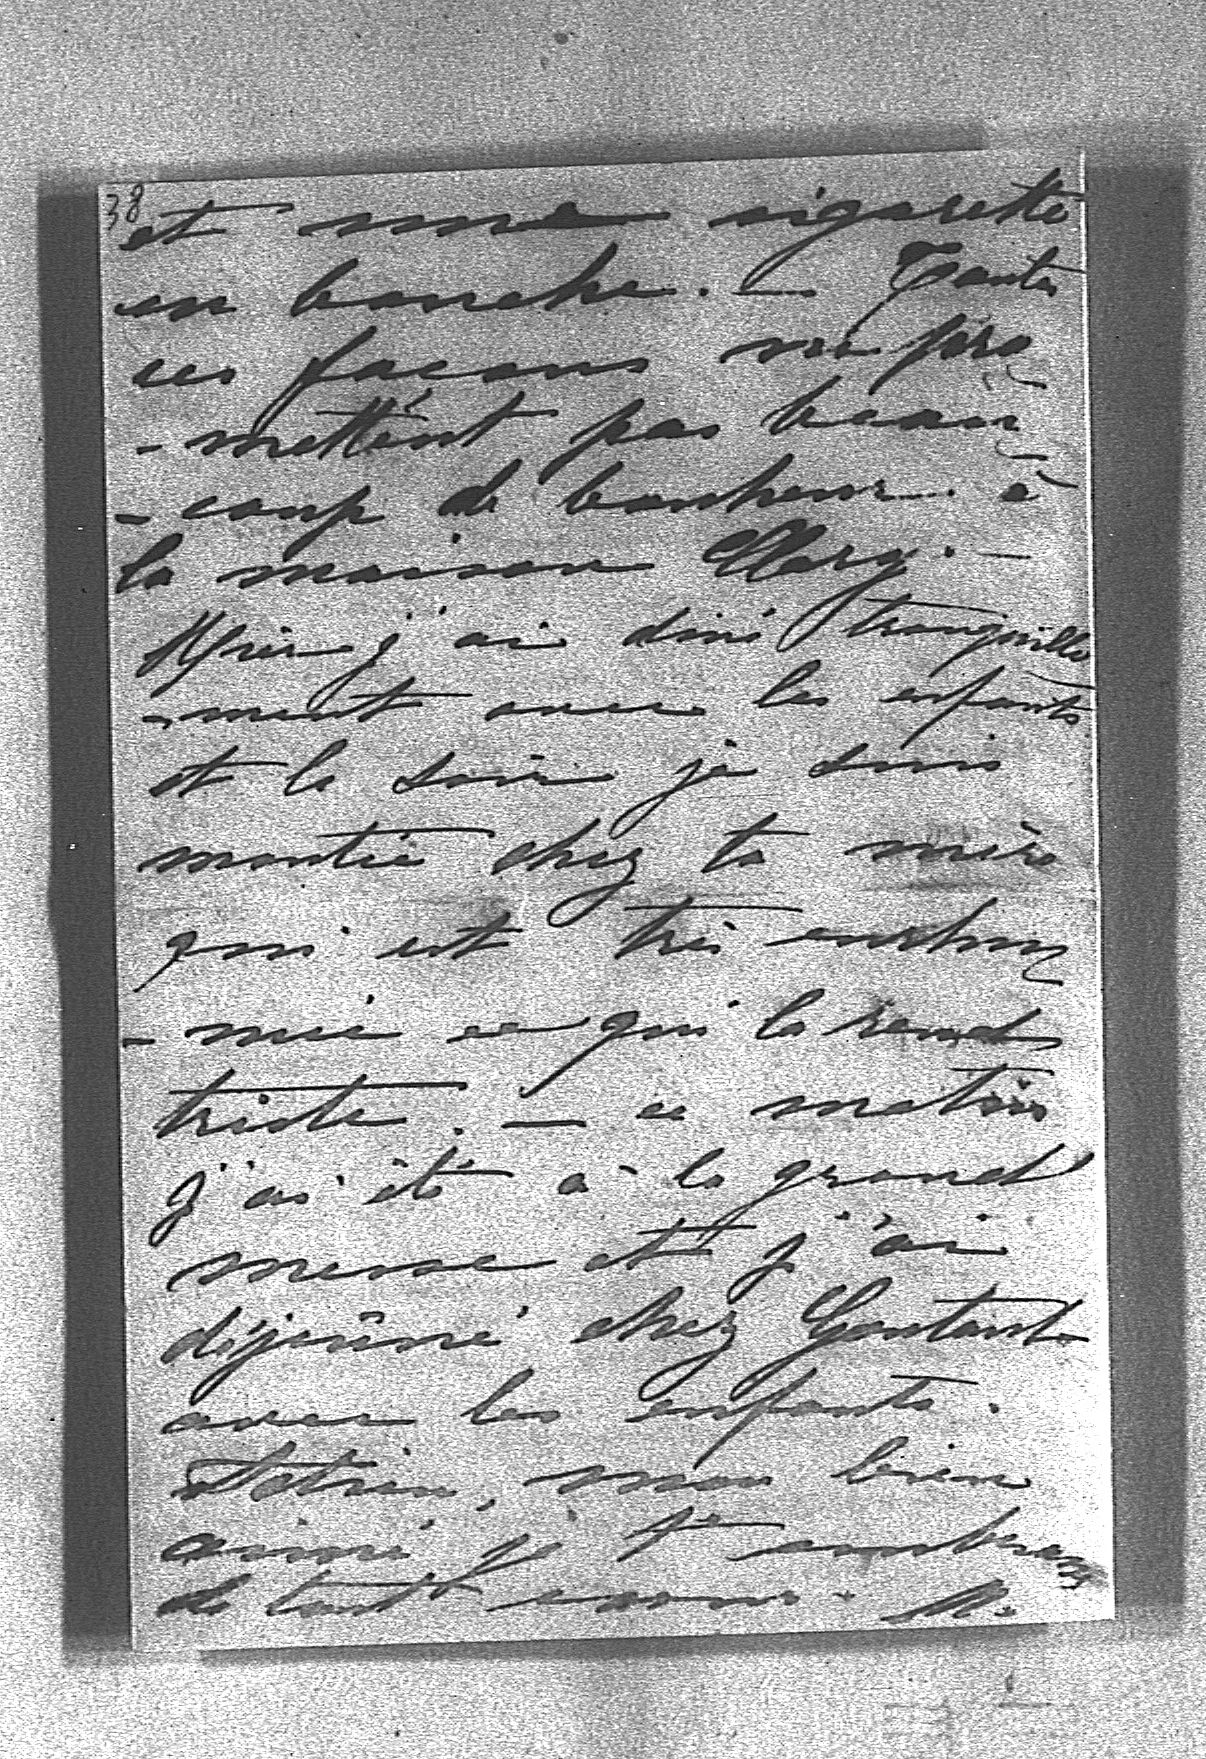 38
et une cigarette
en bouche. — Toutes
ces façons ne pro
- mettent pas beau
- coup de bonheur à
la maison Clary. —
Hier j'ai diné tranquille
- ment avec les enfants
et le soir je suis
montée chez ta mère
qui est très enrhu
- mée ce qui la rend
triste. — ce matin
j'ai été à la grand
messe et j'ai
déjeûné chez
avec les enfants.
mon bien
aimé je t'embrasse
de tout cœur. M.